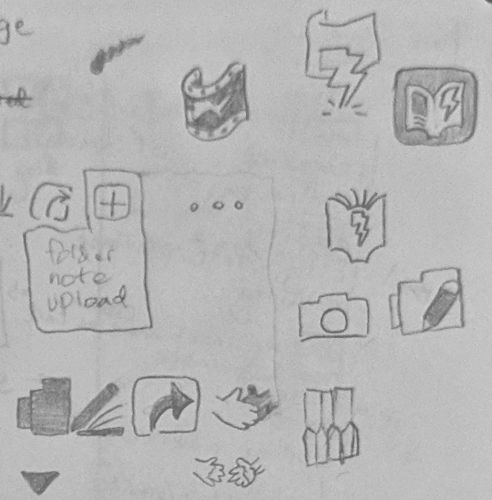 ge
folder
note
upload